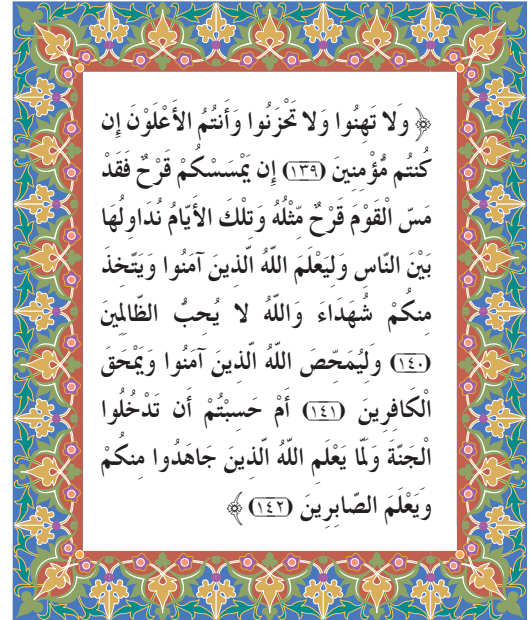 ﴿ وَلا تَهِنُوا وَلا تَحْزَنُوا وَأَنتُمُ الأَعْلَوْنَ إِن
كُنتُم مُّؤْمِنِينَ (١٣٩) إِن يَمْسَسْكُمْ قَرْحٌ فَقَدْ
مَسَّ الْقَوْمَ قَرْحٌ مِّثْلُهُ وَتِلْكَ الأَيَّامُ نُدَاوِلُهَا
بَيْنَ النَّاسِ وَلِيَعْلَمَ اللَّهُ الَّذِينَ آمَنُوا وَيَتَّخِذَ
مِنكُمْ شُهَدَاءَ وَاللَّهُ لا يُحِبُّ الظَّالِمِينَ
(١٤٠) وَلِيُمَحِّصَ اللَّهُ الَّذِينَ آمَنُوا وَيَمْحَقَ
الْكَافِرِينَ (١٤١) أَمْ حَسِبْتُمْ أَن تَدْخُلُوا
الْجَنَّةَ وَلَمَّا يَعْلَمِ اللَّهُ الَّذِينَ جَاهَدُوا مِنكُمْ
وَيَعْلَمَ الصَّابِرِينَ (١٤٢) ﴾